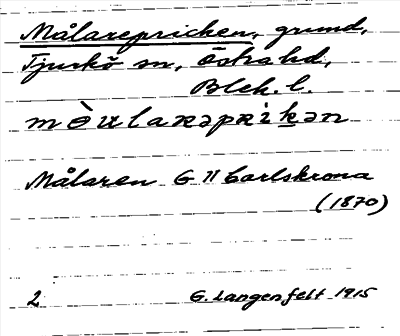 Målarepricken, grund,
Tjurkö sn, Östra hd,
Blek. l.
mòulaʀəpʀikən
Målaren G 11 Carlskrona
(1870)
2 G. Langenfelt 1915